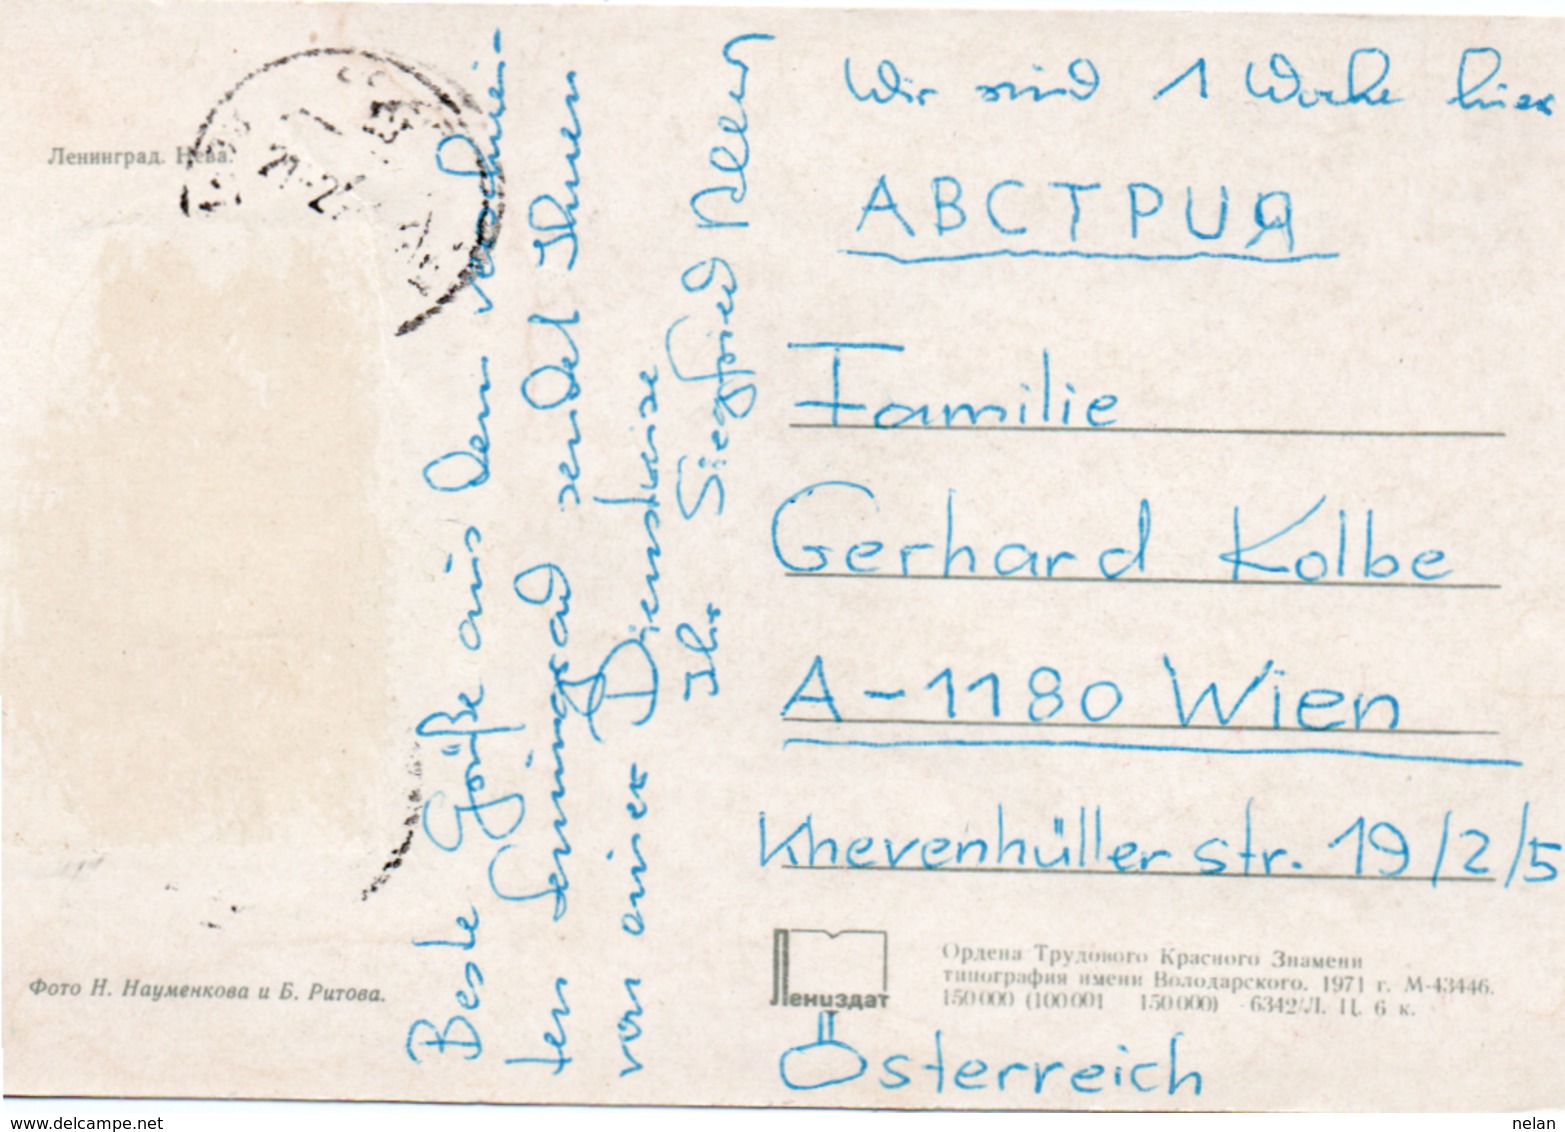 Ленинград. Нева.
Beste Grüße aus dem verschnei-
ten Leningrad sendet Ihnen
von einer Dienstreise
Ihr Siegfried
Wir sind 1 Woche hier
АВСТРИЯ
Familie
Gerhard Kolbe
A-1180 Wien
Khevenhüllerstr. 19/2/5
Österreich
Фото Н. Науменкова и Б. Ритова.
Лениздат
Ордена Трудового Красного Знамени
типография имени Володарского. 1971 г. М-43446.
150 000 (100 001 150 000) 6342/Л. Ц. 6 к.
delcampe.net
nelan